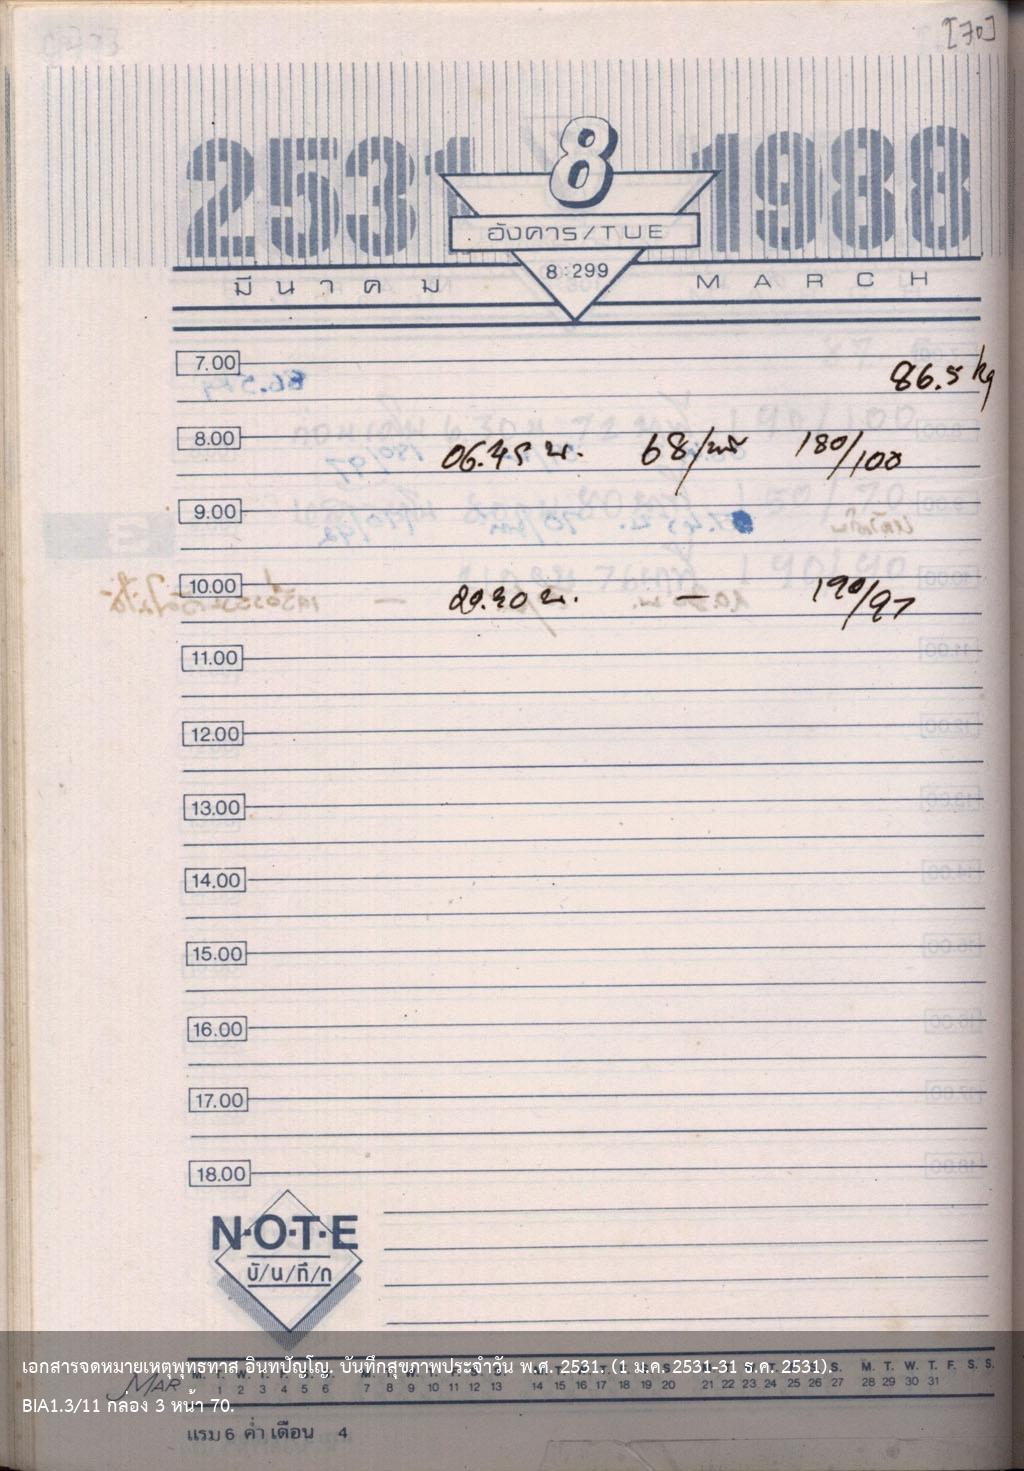 [70]
2531 8 1988
อังคาร/TUE
8:299
มีนาคม MARCH
7.00
86.5 kg
8.00
06.45 น. 68/นาที 180/100
9.00
10.00
190/97
11.00
12.00
13.00
14.00
15.00
16.00
17.00
18.00
N·O·T·E
บั/น/ทึ/ก
เอกสารจดหมายเหตุพุทธทาส อินทปัญโญ. บันทึกสุขภาพประจำวัน พ.ศ. 2531. (1 ม.ค. 2531-31 ธ.ค. 2531).
M. T. W. T. F. S. S. M. T. W. T. F. S. S. M. T. W. T. F. S. S. M. T. W. T. F. S. S. M. T. W. T. F. S. S.
MAR 1 2 3 4 5 6 7 8 9 10 11 12 13 14 15 16 17 18 19 20 21 22 23 24 25 26 27 28 29 30 31
BIA1.3/11 กล่อง 3 หน้า 70.
แรม 6 ค่ำ เดือน 4